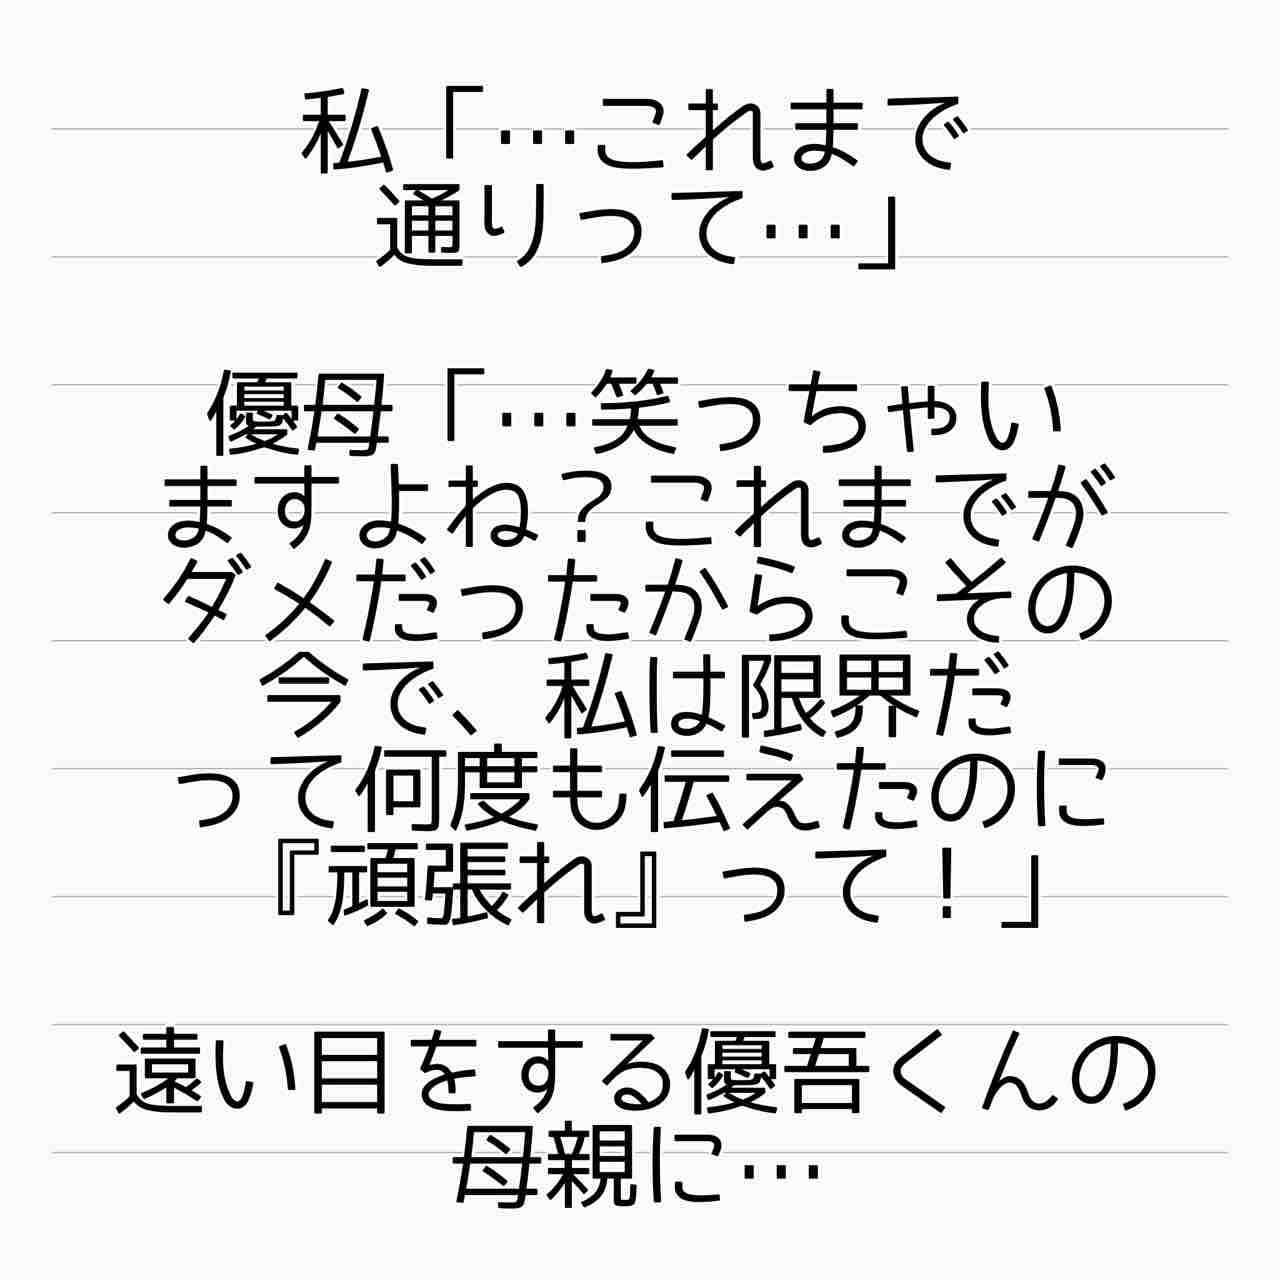 私「…これまで
通りって…」
優母「…笑っちゃい
ますよね？これまでが
ダメだったからこその
今で、私は限界だ
って何度も伝えたのに
『頑張れ』って！」
遠い目をする優吾くんの
母親に…